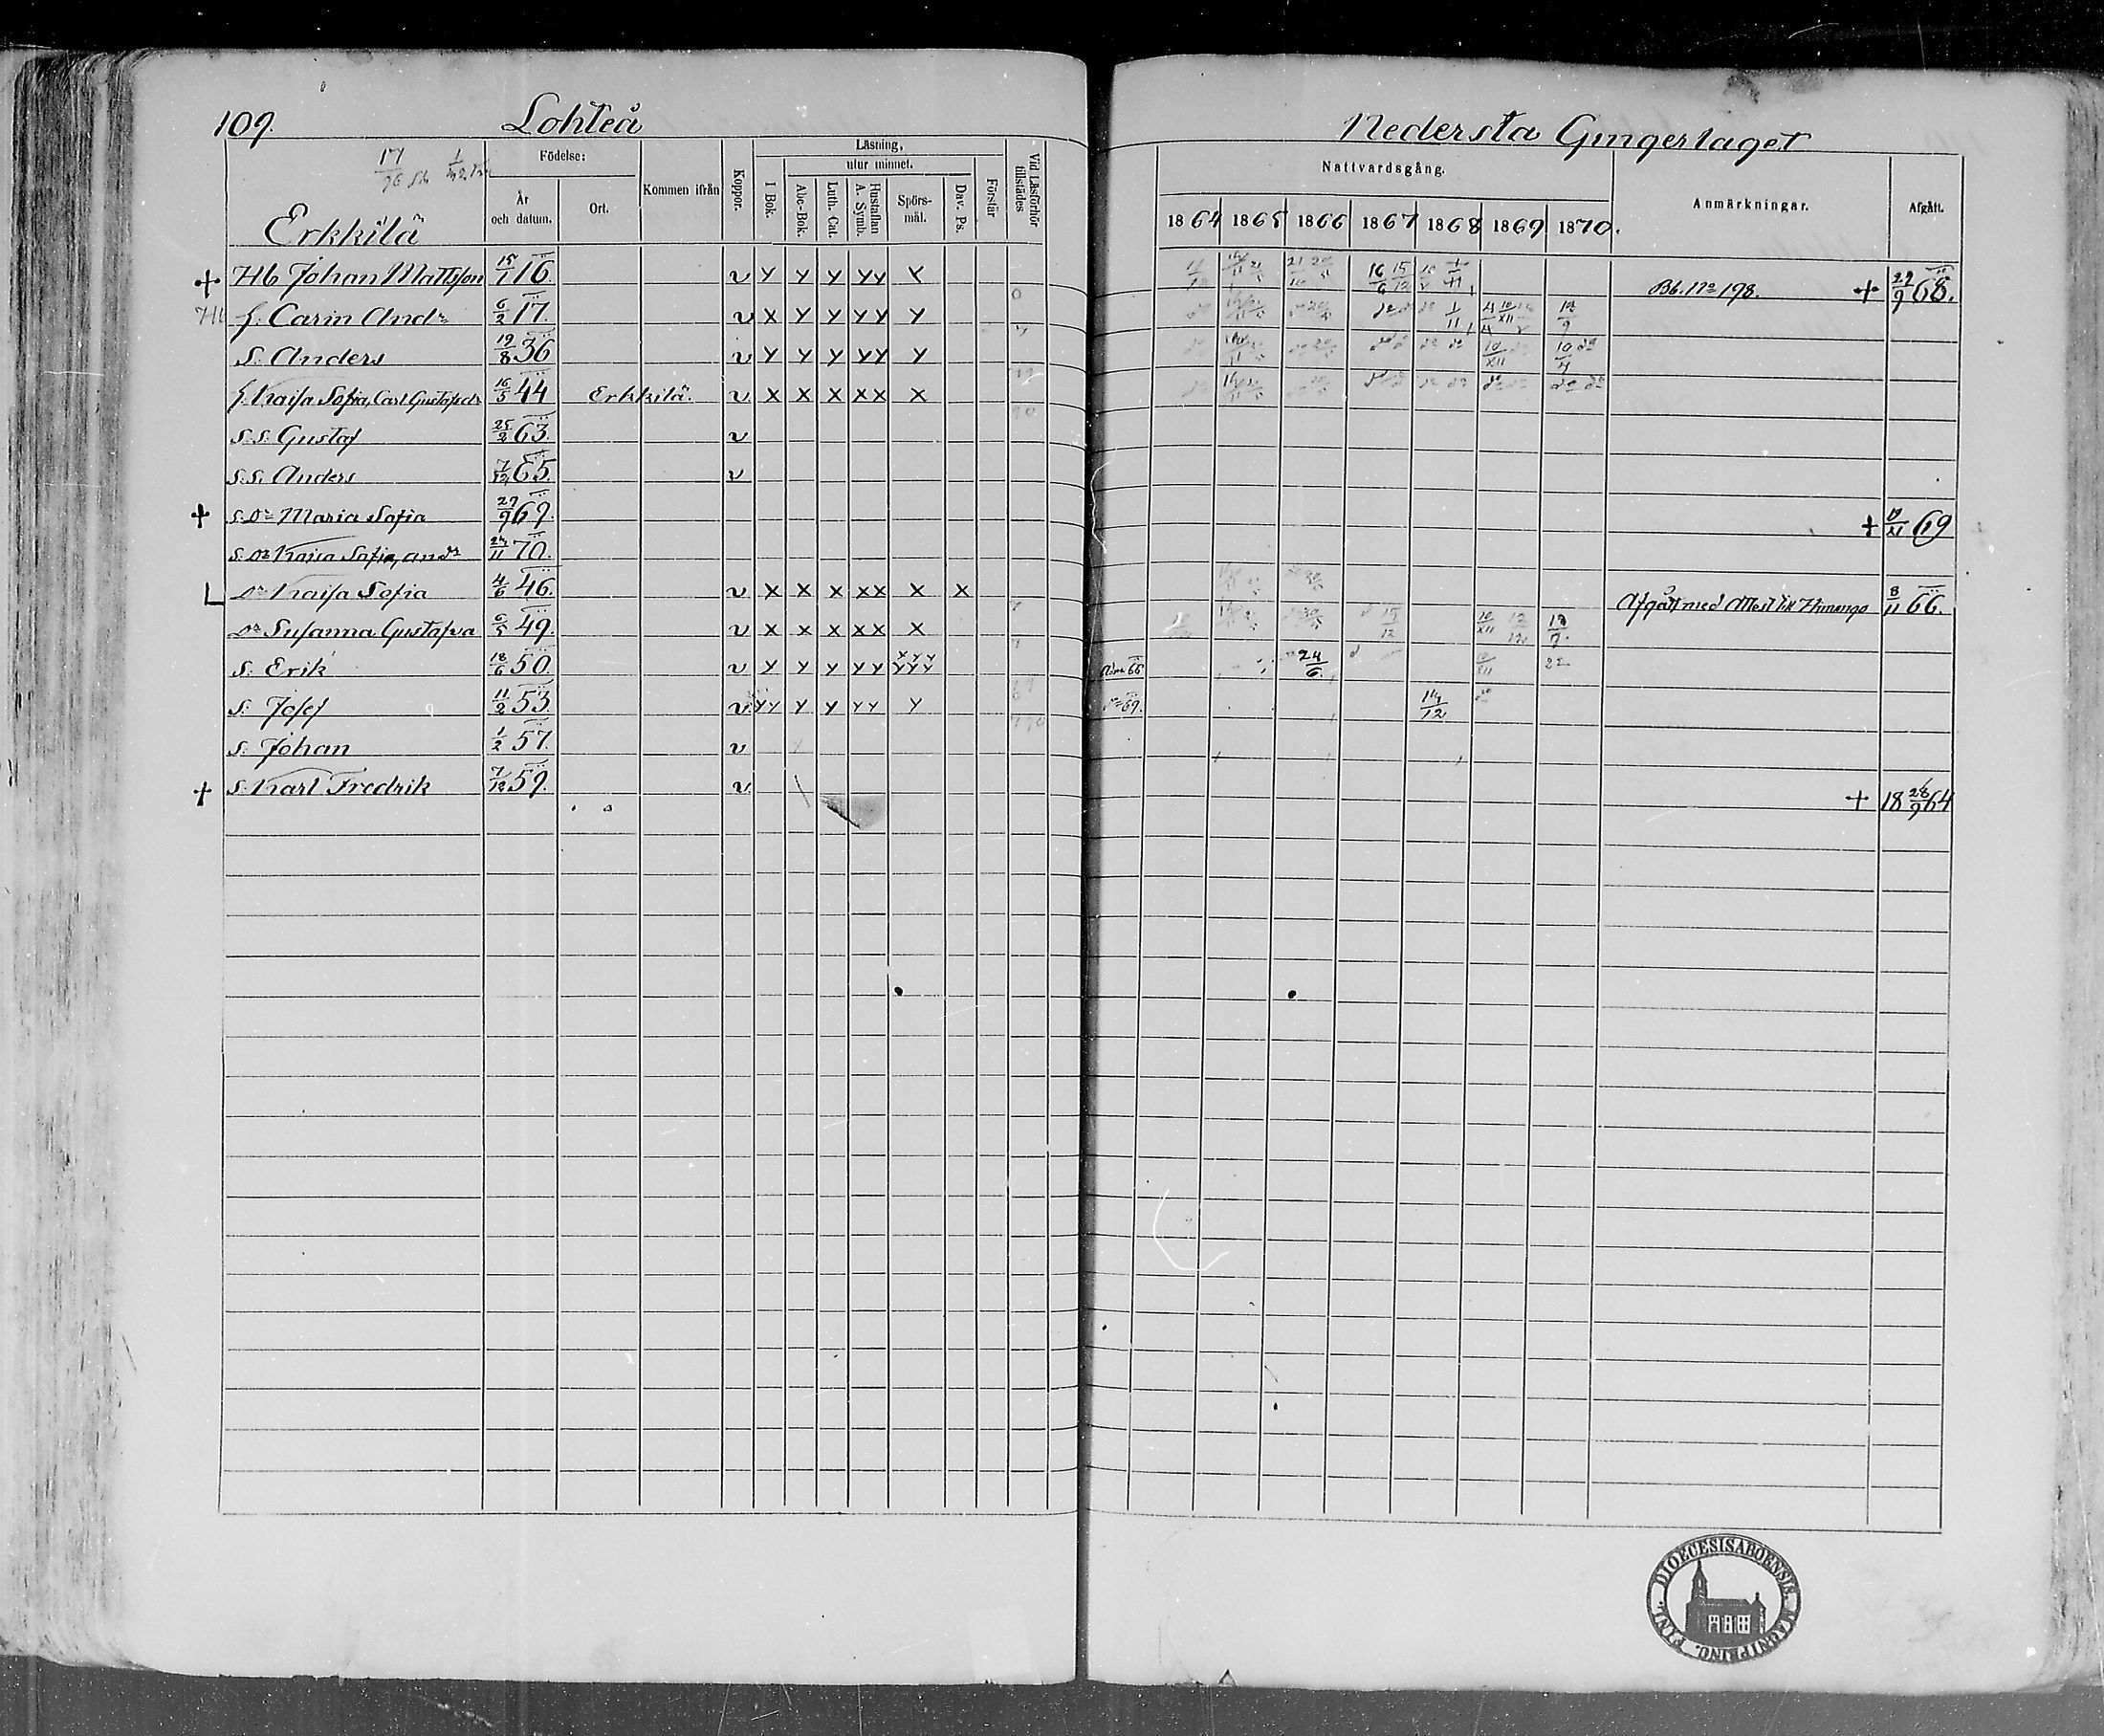 109.
Lohteå
Nedersta Gingerlaget
17/76
Födelse:
År och datum.
Ort.
Kommen ifrån
Koppor.
Läsning,
utur minnet.
I Bok.
Abc-Bok.
Luth. Cat.
Hustaflan A. Symb.
Spörs-mål.
Dav. Ps.
Förstår
Vid Läsförhör tillstädes
Nattvardsgång.
1864 1865 1866 1867 1868 1869 1870.
Anmärkningar.
Afgått.
Erkkilä
+ Hb Johan Mattsson 15/1 16. v y y y yy x 16/6 15/12 Bb. No 198. + 29/9 68.
Hb h. Carin Andr 6/2 17. v x y y yy y
S. Anders 19/8 36 v y y y yy y 10/XII 10/4
h. Kaisa Sofia, Carl Gustafsdr 16/5 44 Erkkilä. v x x x xx x
S.S. Gustaf 25/2 63. v
S.S. Anders 7/12 65. v
+ S.Dr Maria Sofia 29/9 69. + 19/XI 69
S. Dr Kaisa Sofia, Andr 24/11 70.
L Dr Kaisa Sofia 4/6 46. v x x x xx x x Afgått med attest till Himango 8/11 66.
Dr Susanna Gustafva 6/5 49. v x x x xx x 15/12 10/XII
S. Erik 18/6 50. v y y y yy xyy yyy 24/6
S. Josef 11/2 53. v yy y y yy y 69. 14/12
S. Johan 1/2 57. v
+ S. Karl Fredrik 7/12 59. v + 18 28/9 64
FINL. DIOECESIS ABOENSIS. MAGNI PRINC.